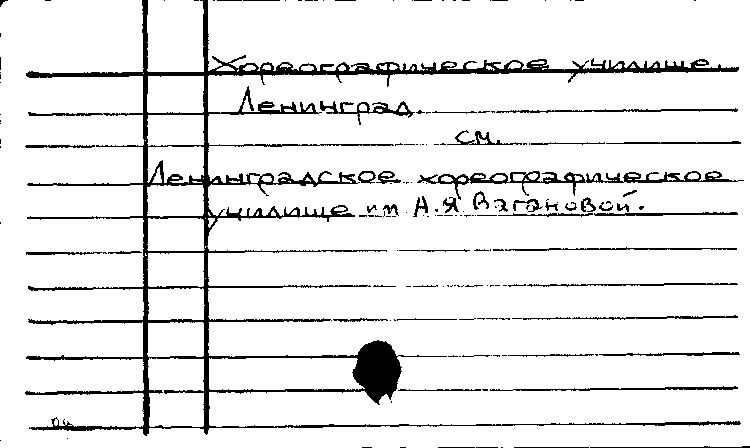 Хореографическое училище.
Ленинград.
см.
Ленинградское хореографическое
училище им А.Я Вагановой.